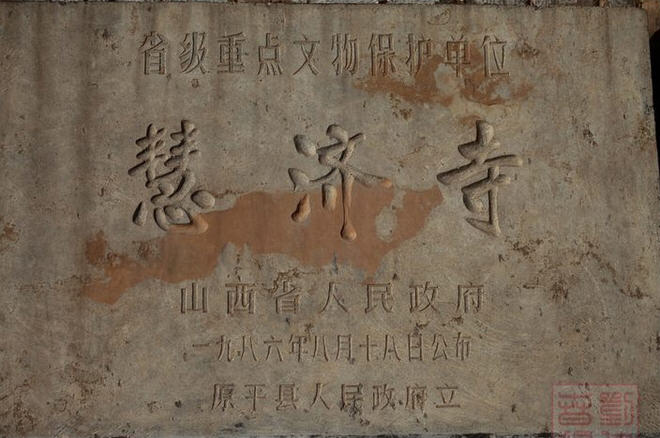 省级重点文物保护单位
慧济寺
山西省人民政府
一九八六年八月十八日公布
原平县人民政府立